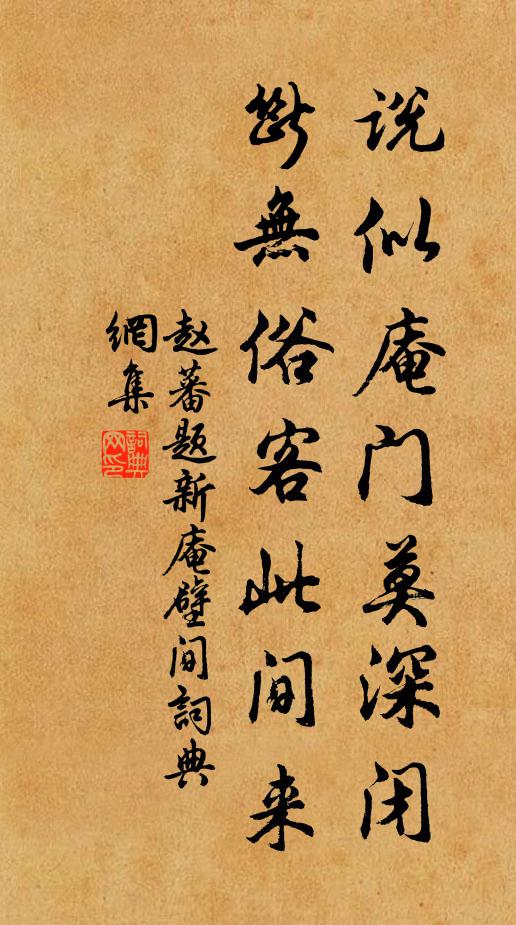 说似庵门莫深闭
断无俗客此间来
赵蕃题新庵壁间詞典
網集
詞典网印